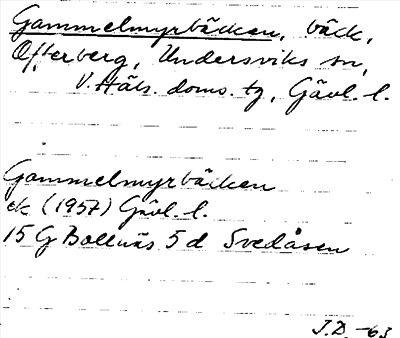 Gammelmyrbäcken, bäck,
Ofterberg, Undersviks sn,
V. Häls. doms. tg, Gävl. l.
Gammelmyrbäcken
ek (1957) Gävl. l.
15 G Bollnäs 5 d Svedåsen
J.D. -63